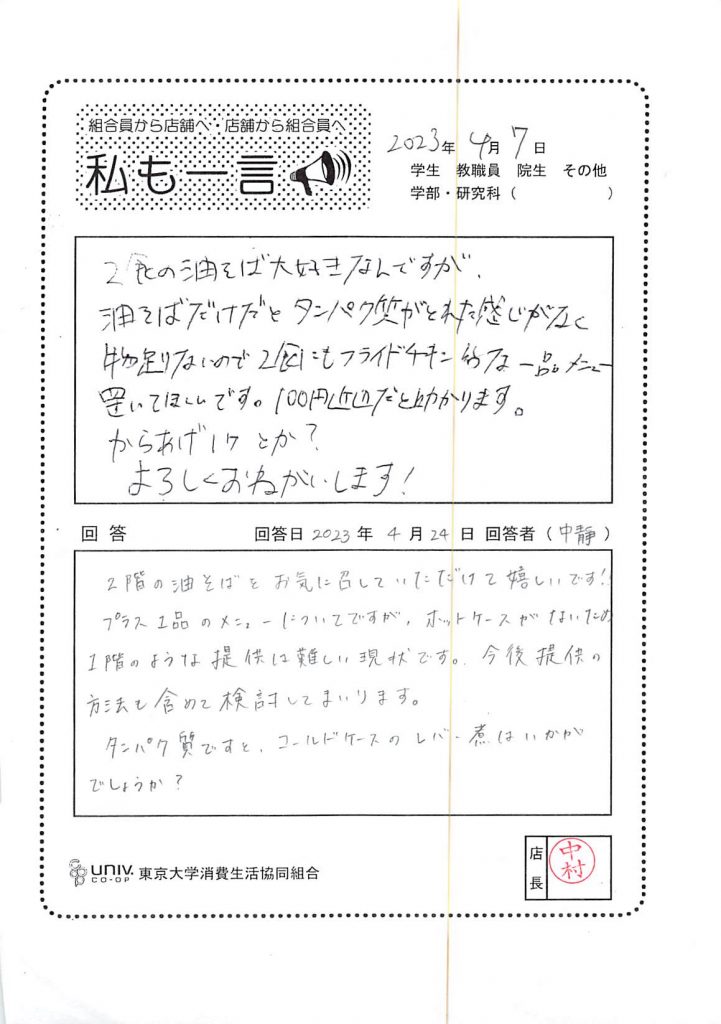 組合員から店舗へ・店舗から組合員へ
私も一言
2023年 4月 7日
学生 教職員 院生 その他
学部・研究科( )
2食の油そば大好きなんですが、
油そばだけだと タンパク質がとれた感じがなく
物足りないので 2食にもフライドチキン的な一品メニュー
置いてほしいです。100円近辺だと助かります。
からあげ1ケ とか?
よろしくおねがいします!
回答 回答日 2023 年 4 月 24 日 回答者 (中静)
2階の油そばをお気に召していただけて嬉しいです!
プラス1品のメニューについてですが、ホットケースがないため
1階のような提供は難しい現状です。今後提供の
方法も含めて検討してまいります。
タンパク質ですと、コールドケースのレバー煮はいかがが
でしょうか?
UNIV. CO-OP 東京大学消費生活協同組合
店長 中村